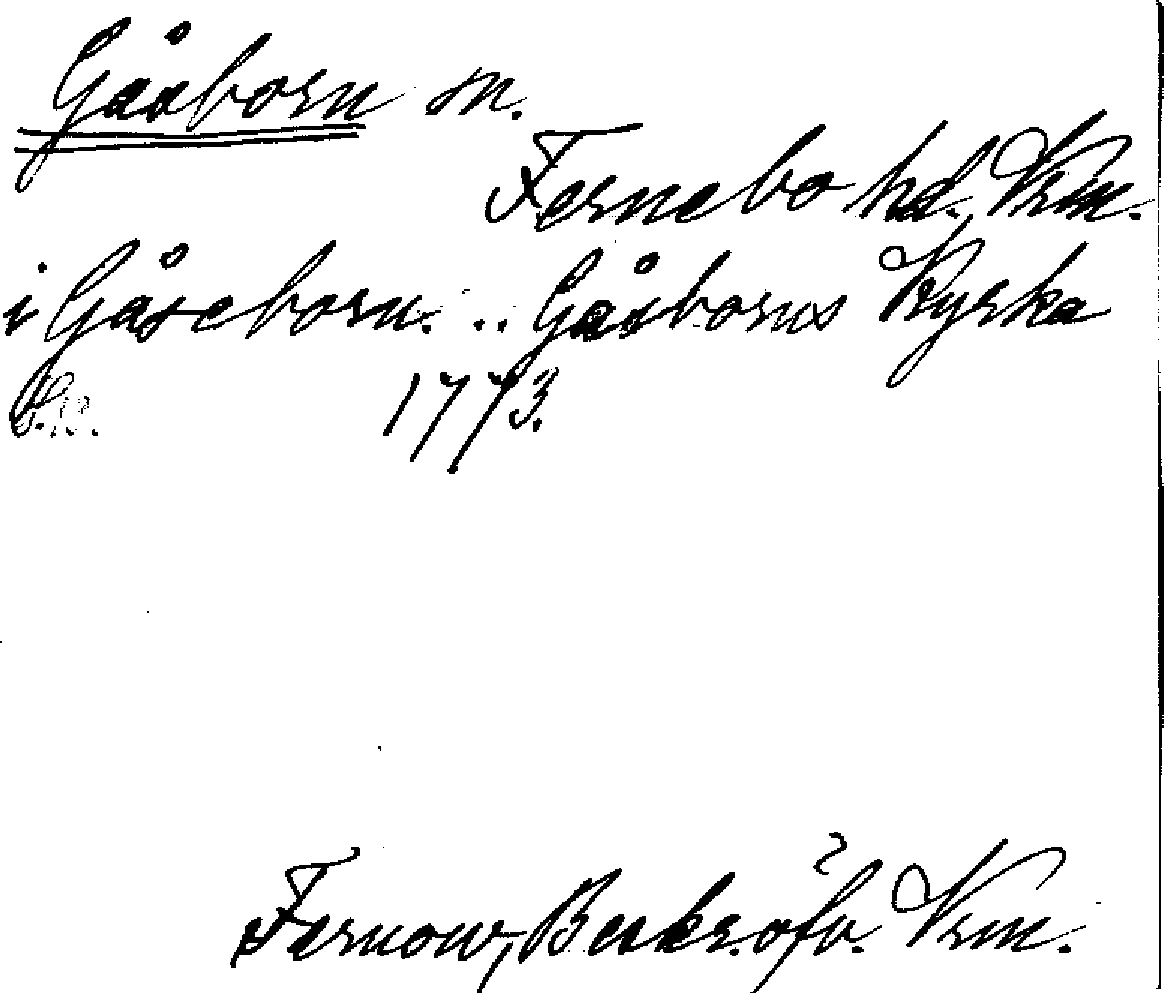 Gåsborn sn.
Fernebo hd. Vrm.
i Gåseborn. .. Gåsborns Kyrka
1773.
Fernow, Beskr. öfv. Vrm.